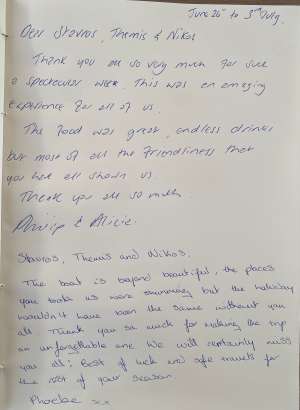 June 26th to 3rd July.
Dear Stavros, Themis & Nikos
Thank you all so very much for such
a spectacular week. This was an amazing
experience for all of us.
The food was great, endless drinks
but most of all the friendliness that
you have all shown us.
Thank you all so much.
Philip & Alicie.
Stavros, Themis and Nikos.
The boat is beyond beautiful, the places
you took us were stunning but the holiday
wouldn't have been the same without you
all. Thank you so much for making the trip
an unforgettable one. We will certainly miss
you all! Best of luck and safe travels for
the rest of your season.
Phoebe xx